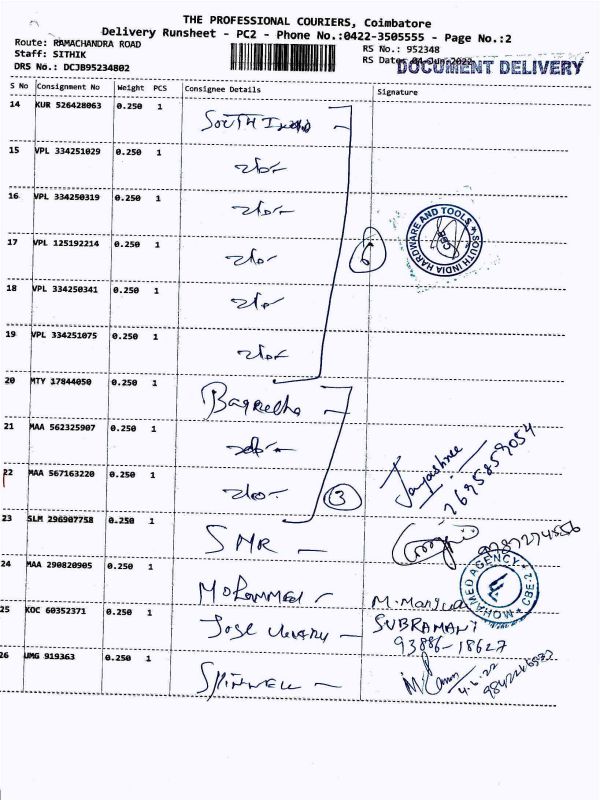 THE PROFESSIONAL COURIERS, Coimbatore
Delivery Runsheet - PC2 - Phone No.:0422-3505555 - Page No.:2
Route: RAMACHANDRA ROAD
RS No.: 952348
Staff: SITHIK
RS Date: 04-Jun-2022
DRS No.: DCJB95234802
DOCUMENT DELIVERY
S No Consignment No Weight PCS Consignee Details Signature
14 KUR 526428063 0.250 1 SOUTH India
15 VPL 334251029 0.250 1
16 VPL 334250319 0.250 1
SOUTH INDIA HARDWARE AND TOOLS * CBE
17 VPL 125192214 0.250 1 6
18 VPL 334250341 0.250 1
19 VPL 334251075 0.250 1
20 MTY 17844050 0.250 1
21 MAA 562325907 0.250 1
Jayashree
22 MAA 567163220 0.250 1 3
23 SLM 296907758 0.250 1 SMR
24 MAA 290820905 0.250 1 MOHAMMED
MOHAMED AGENCY * CBE-2
25 KOC 60352371 0.250 1 SUBRAMANI
93886-18627
26 JMG 919363 0.250 1 SPINWELL 4.6.22